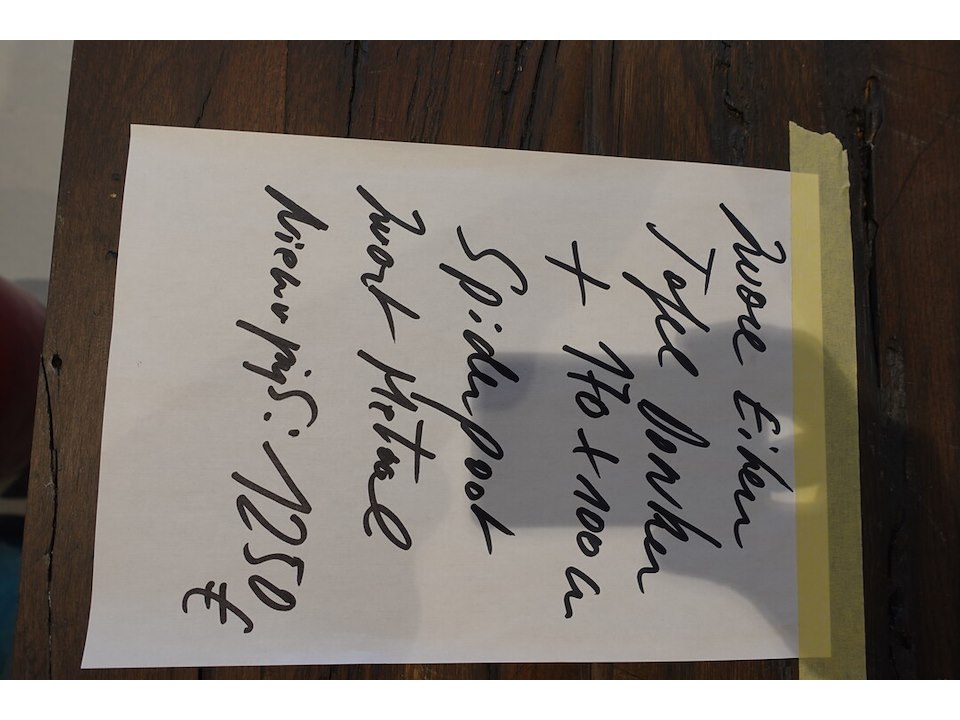 Zware Eiken
Tafel Donker
+ 170 x 100 cm
Spiderpoot
Zwart Metaal
Nieuwprijs: 1250
€